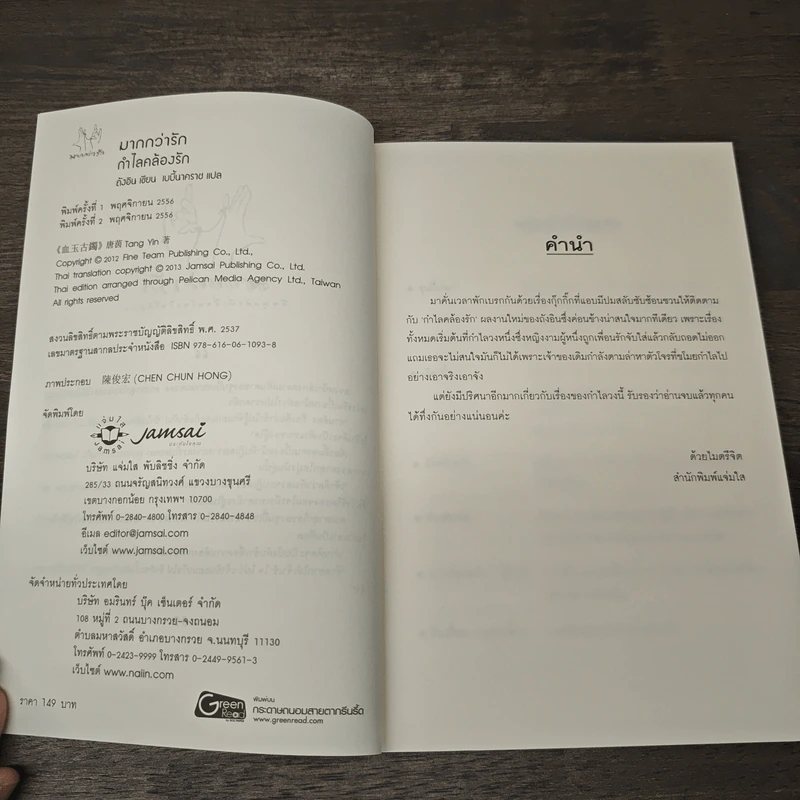 มากกว่ารัก
มากกว่ารัก
กำไลคล้องรัก
ถังอิน เขียน เบบี้นาคราช แปล
พิมพ์ครั้งที่ 1 พฤศจิกายน 2556
พิมพ์ครั้งที่ 2 พฤศจิกายน 2556
《血玉古鐲》唐茵 Tang Yin 著
Copyright © 2012 Fine Team Publishing Co., Ltd.,
Thai translation copyright © 2013 Jamsai Publishing Co., Ltd.
Thai edition arranged through Pelican Media Agency Ltd., Taiwan
All rights reserved
สงวนลิขสิทธิ์ตามพระราชบัญญัติลิขสิทธิ์ พ.ศ. 2537
เลขมาตรฐานสากลประจำหนังสือ ISBN 978-616-06-1093-8
ภาพประกอบ 陳俊宏 (CHEN CHUN HONG)
จัดพิมพ์โดย
แจ่มใส
Jamsai
Jamsai
บริษัท แจ่มใส พับลิชชิ่ง จำกัด
285/33 ถนนจรัญสนิทวงศ์ แขวงบางขุนศรี
เขตบางกอกน้อย กรุงเทพฯ 10700
โทรศัพท์ 0-2840-4800 โทรสาร 0-2840-4848
อีเมล editor@jamsai.com
เว็บไซต์ www.jamsai.com
จัดจำหน่ายทั่วประเทศโดย
บริษัท อมรินทร์ บุ๊ค เซ็นเตอร์ จำกัด
108 หมู่ที่ 2 ถนนบางกรวย-จงถนอม
ตำบลมหาสวัสดิ์ อำเภอบางกรวย จ.นนทบุรี 11130
โทรศัพท์ 0-2423-9999 โทรสาร 0-2449-9561-3
เว็บไซต์ www.naiin.com
ราคา 149 บาท
Green Read
พิมพ์บน
กระดาษถนอมสายตากรีนรี้ด
www.greenread.com
คำนำ
มาคั่นเวลาพักเบรกกันด้วยเรื่องกุ๊กกิ๊กที่แอบมีปมสลับซับซ้อนชวนให้ติดตาม
กับ 'กำไลคล้องรัก' ผลงานใหม่ของถังอินซึ่งค่อนข้างน่าสนใจมากทีเดียว เพราะเรื่อง
ทั้งหมดเริ่มต้นที่กำไลวงหนึ่งซึ่งหญิงงามผู้หนึ่งถูกเพื่อนรักจับใส่แล้วกลับถอดไม่ออก
แถมเธอจะไม่สนใจมันก็ไม่ได้เพราะเจ้าของเดิมกำลังตามล่าหาตัวโจรที่ขโมยกำไลไป
อย่างเอาจริงเอาจัง
แต่ยังมีปริศนาอีกมากเกี่ยวกับเรื่องของกำไลวงนี้ รับรองว่าอ่านจบแล้วทุกคน
ได้ทึ่งกันอย่างแน่นอนค่ะ
ด้วยไมตรีจิต
สำนักพิมพ์แจ่มใส